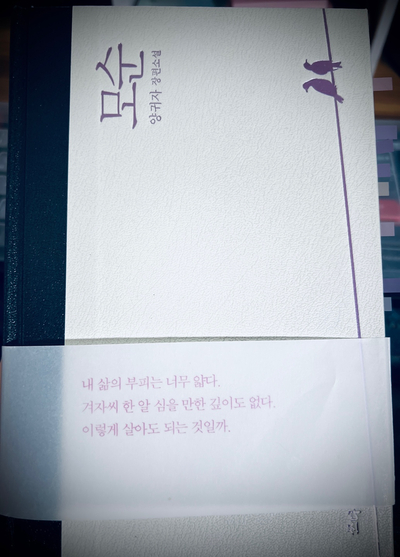 모순
양귀자 장편소설
내 삶의 부피는 너무 얇다.
겨자씨 한 알 심을 만한 깊이도 없다.
이렇게 살아도 되는 것일까.